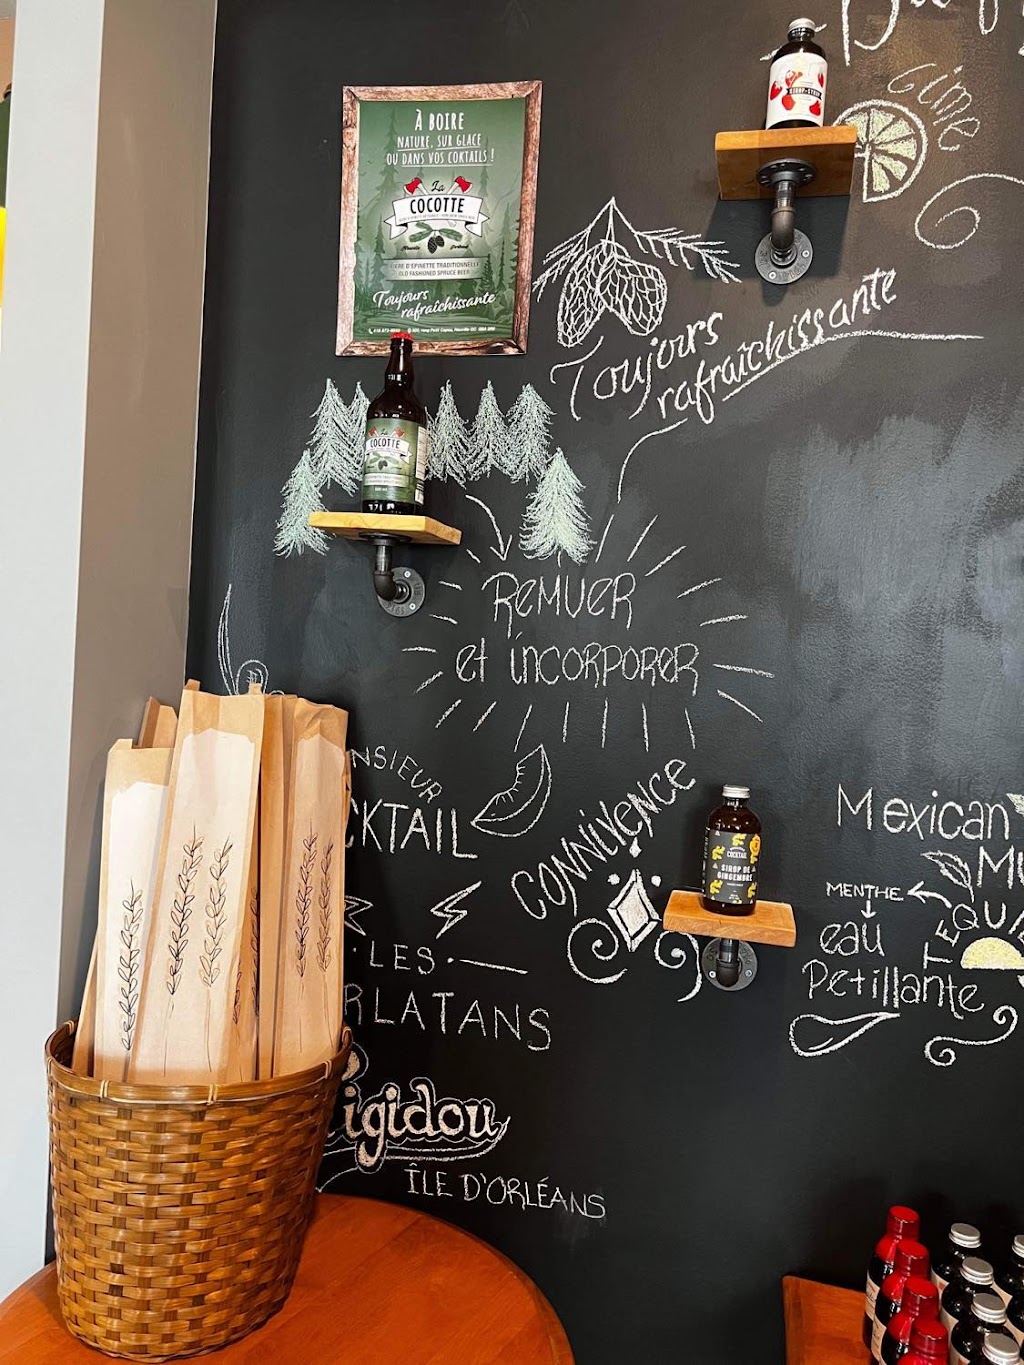 À BOIRE
NATURE, SUR GLACE
OU DANS VOS COKTAILS !
La
COCOTTE
BIÈRE D'ÉPINETTE TRADITIONNELLE
OLD FASHIONED SPRUCE BEER
Toujours
rafraîchissante
Lime
SIROP • SYRUP
Toujours
rafraîchissante
La
COCOTTE
Remuer
et incorporer
NSIEUR
CKTAIL
CONNIVENCE
COCKTAIL
SIROP DE
GINGEMBRE
Mexican
MU
MENTHE
TEQUI
eau
Petillante
• LES •
RLATANS
igidou
ÎLE D'ORLÉANS